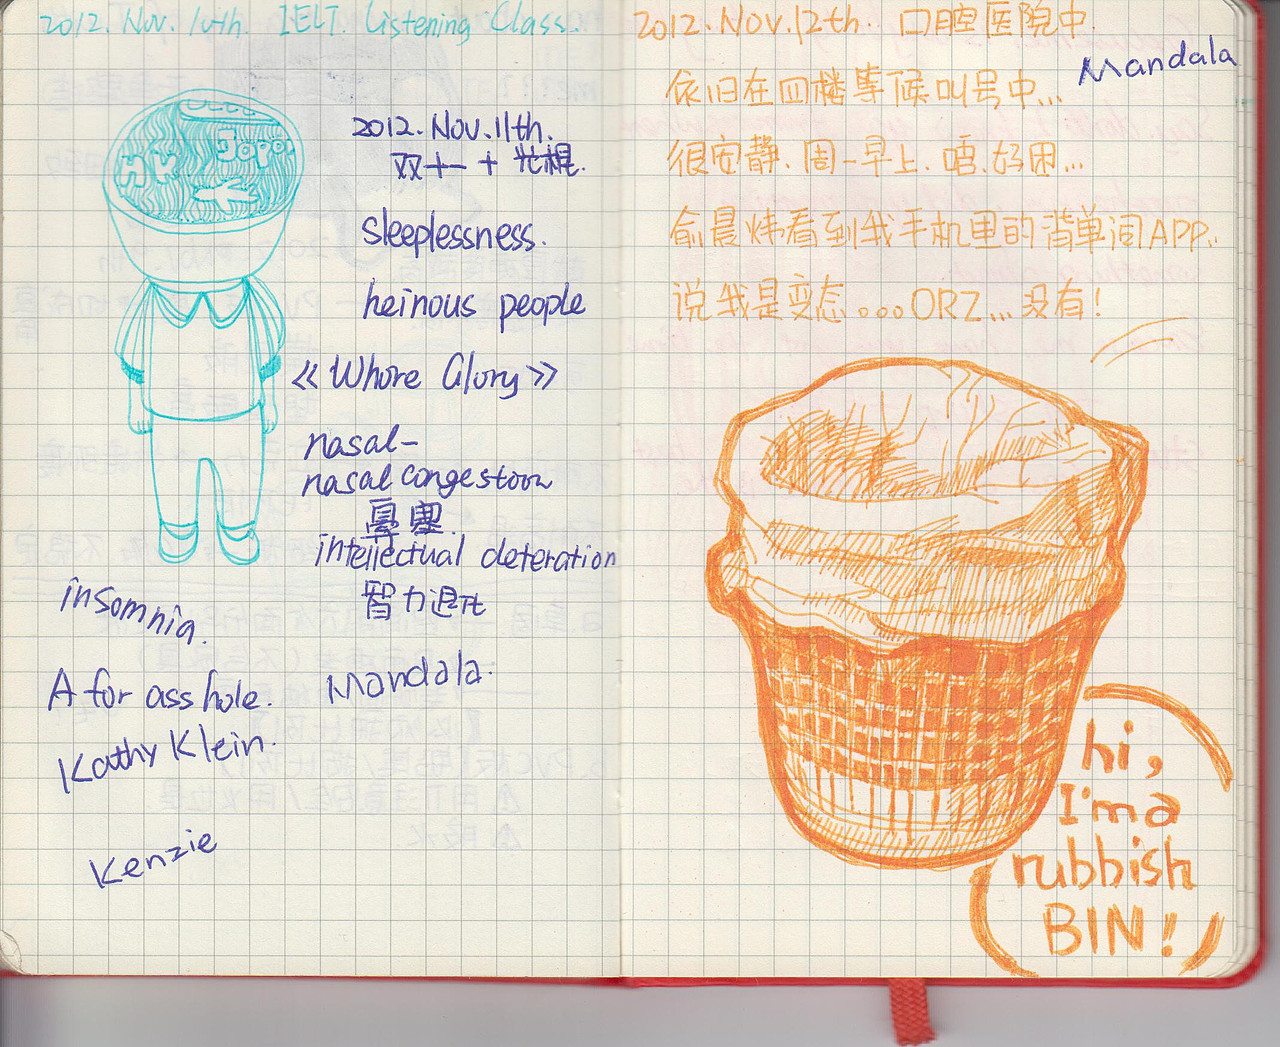 2012. Nov. 10th. IELT. Listening Class.
HK Japa
2012. Nov. 11th.
双十一 + 光棍.
sleeplessness.
heinous people
《Whore Glory》
nasal-
nasal congestoon
鼻塞.
intellectual deteration
智力退化
insomnia.
A for asshole.
Mandala.
Kathy Klein.
Kenzie
2012. NOV. 12th. 口腔医院中.
Mandala
依旧在四楼等候叫号中...
很安静.周一早上.唔.好困...
俞晨炜看到我手机里的背单词APP..
说我是变态。。。ORZ...没有!
hi,
I'm a
rubbish
BIN!